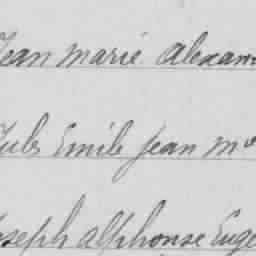 Jean Marie Alexan
Jules Emile Jean Me
Joseph Alphonse Euge